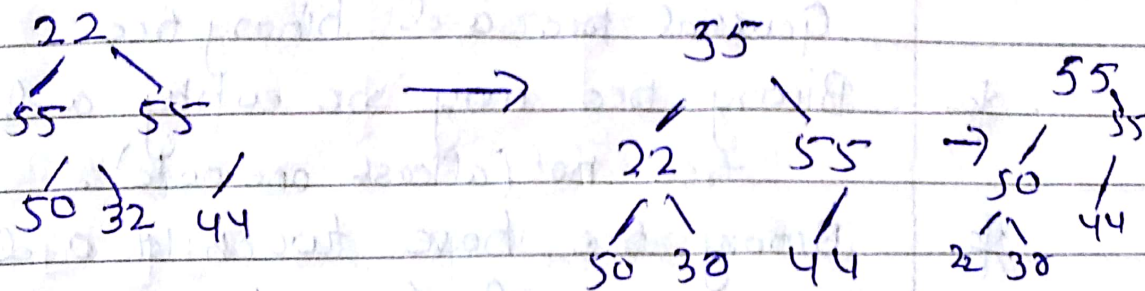 22
55 55
50 32 44
→
55
22 55
50 30 44
→
55
50 55
22 30 44